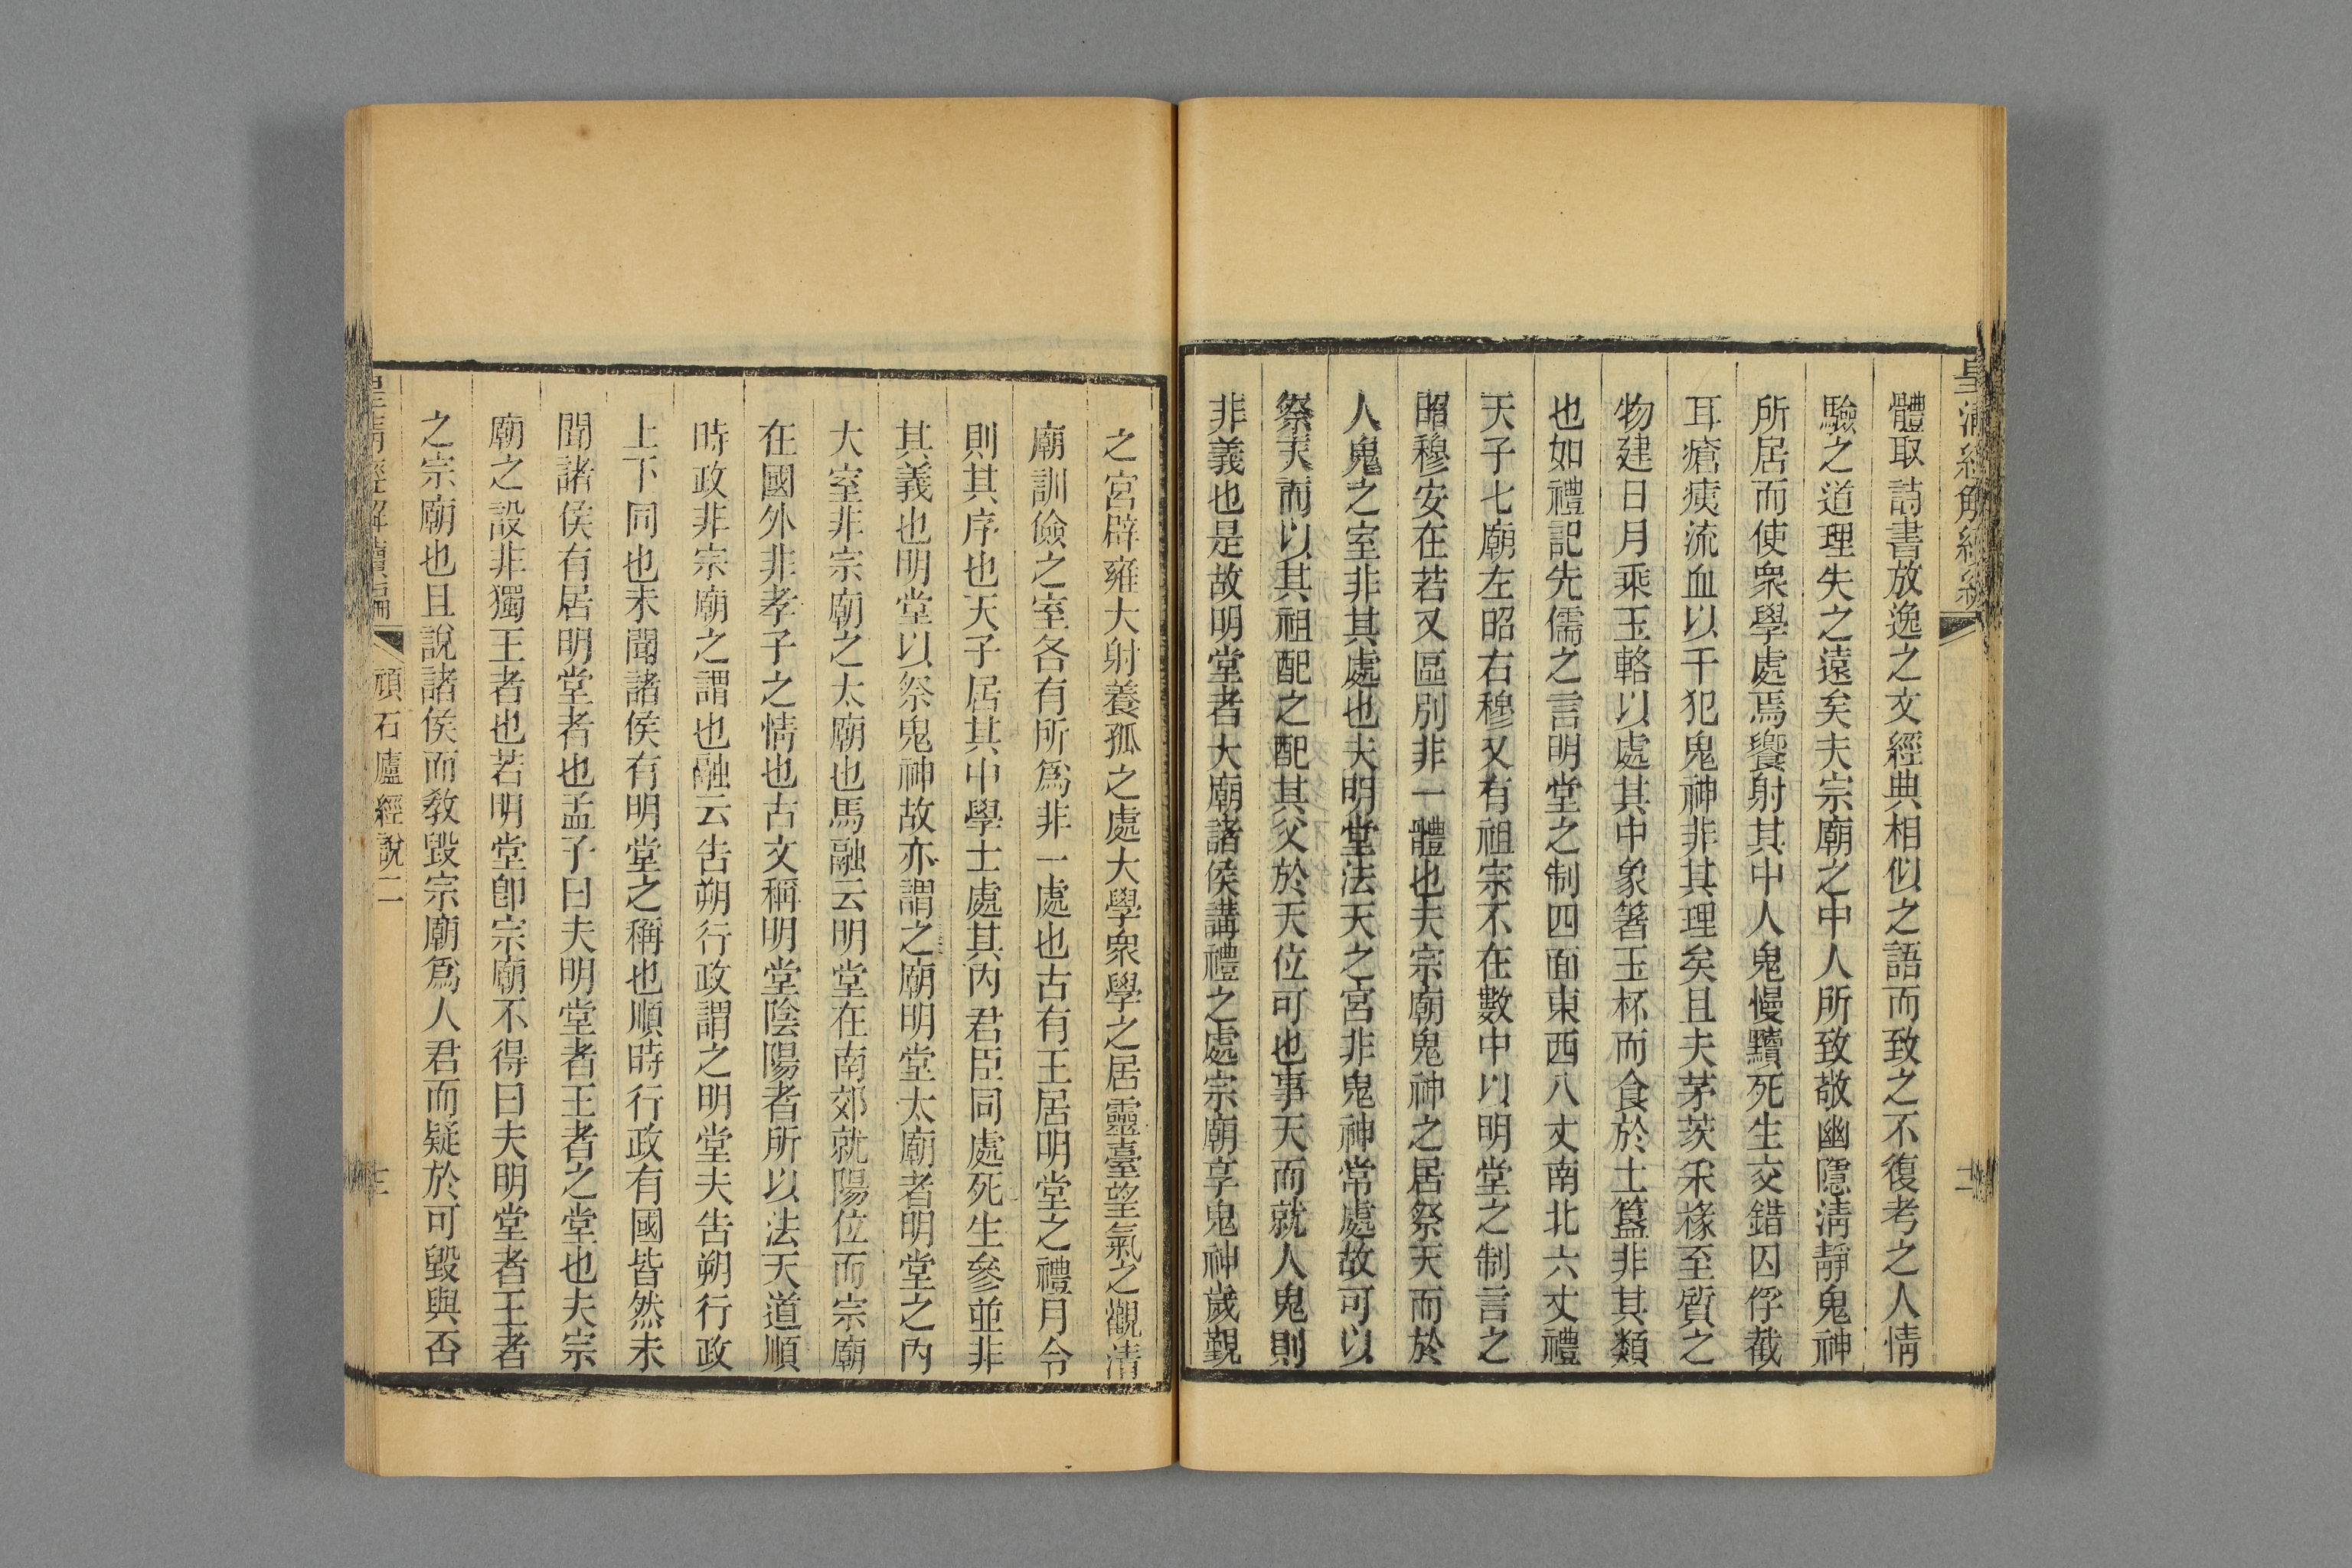 體取詩書放逸之文經典相似之語而致之不復考之人情
驗之道理失之遠矣夫宗廟之中人所致敬幽隱清靜鬼神
所居而使衆學處焉饗射其中人鬼慢黷死生交錯囚俘截
耳瘡痍流血以干犯鬼神非其理矣且夫茅茨采椽至質之
物建日月乘玉輅以處其中象箸玉杯而食於土簋非其類
也如禮記先儒之言明堂之制四面東西八丈南北六丈禮
天子七廟左昭右穆又有祖宗不在數中以明堂之制言之
昭穆安在若又區別非一體也夫宗廟鬼神之居祭天而於
人鬼之室非其處也夫明堂法天之宮非鬼神常處故可以
祭天而以其祖配之配其父於天位可也事天而就人鬼則
非義也是故明堂者大廟諸侯講禮之處宗廟享鬼神歲覲
之宮辟雍大射養孤之處大學衆學之居靈臺望氣之觀清
廟訓儉之室各有所爲非一處也古有王居明堂之禮月令
則其序也天子居其中學士處其內君臣同處死生參並非
其義也明堂以祭鬼神故亦謂之廟明堂太廟者明堂之內
大室非宗廟之太廟也馬融云明堂在南郊就陽位而宗廟
在國外非孝子之情也古文稱明堂陰陽者所以法天道順
時政非宗廟之謂也融云告朔行政謂之明堂夫告朔行政
上下同也未聞諸侯有明堂之稱也順時行政有國皆然未
聞諸侯有居明堂者也孟子曰夫明堂者王者之堂也夫宗
廟之設非獨王者也若明堂卽宗廟不得曰夫明堂者王者
之宗廟也且說諸侯而敎毀宗廟爲人君而疑於可毀與否
皇清經解續編
頑石廬經說二